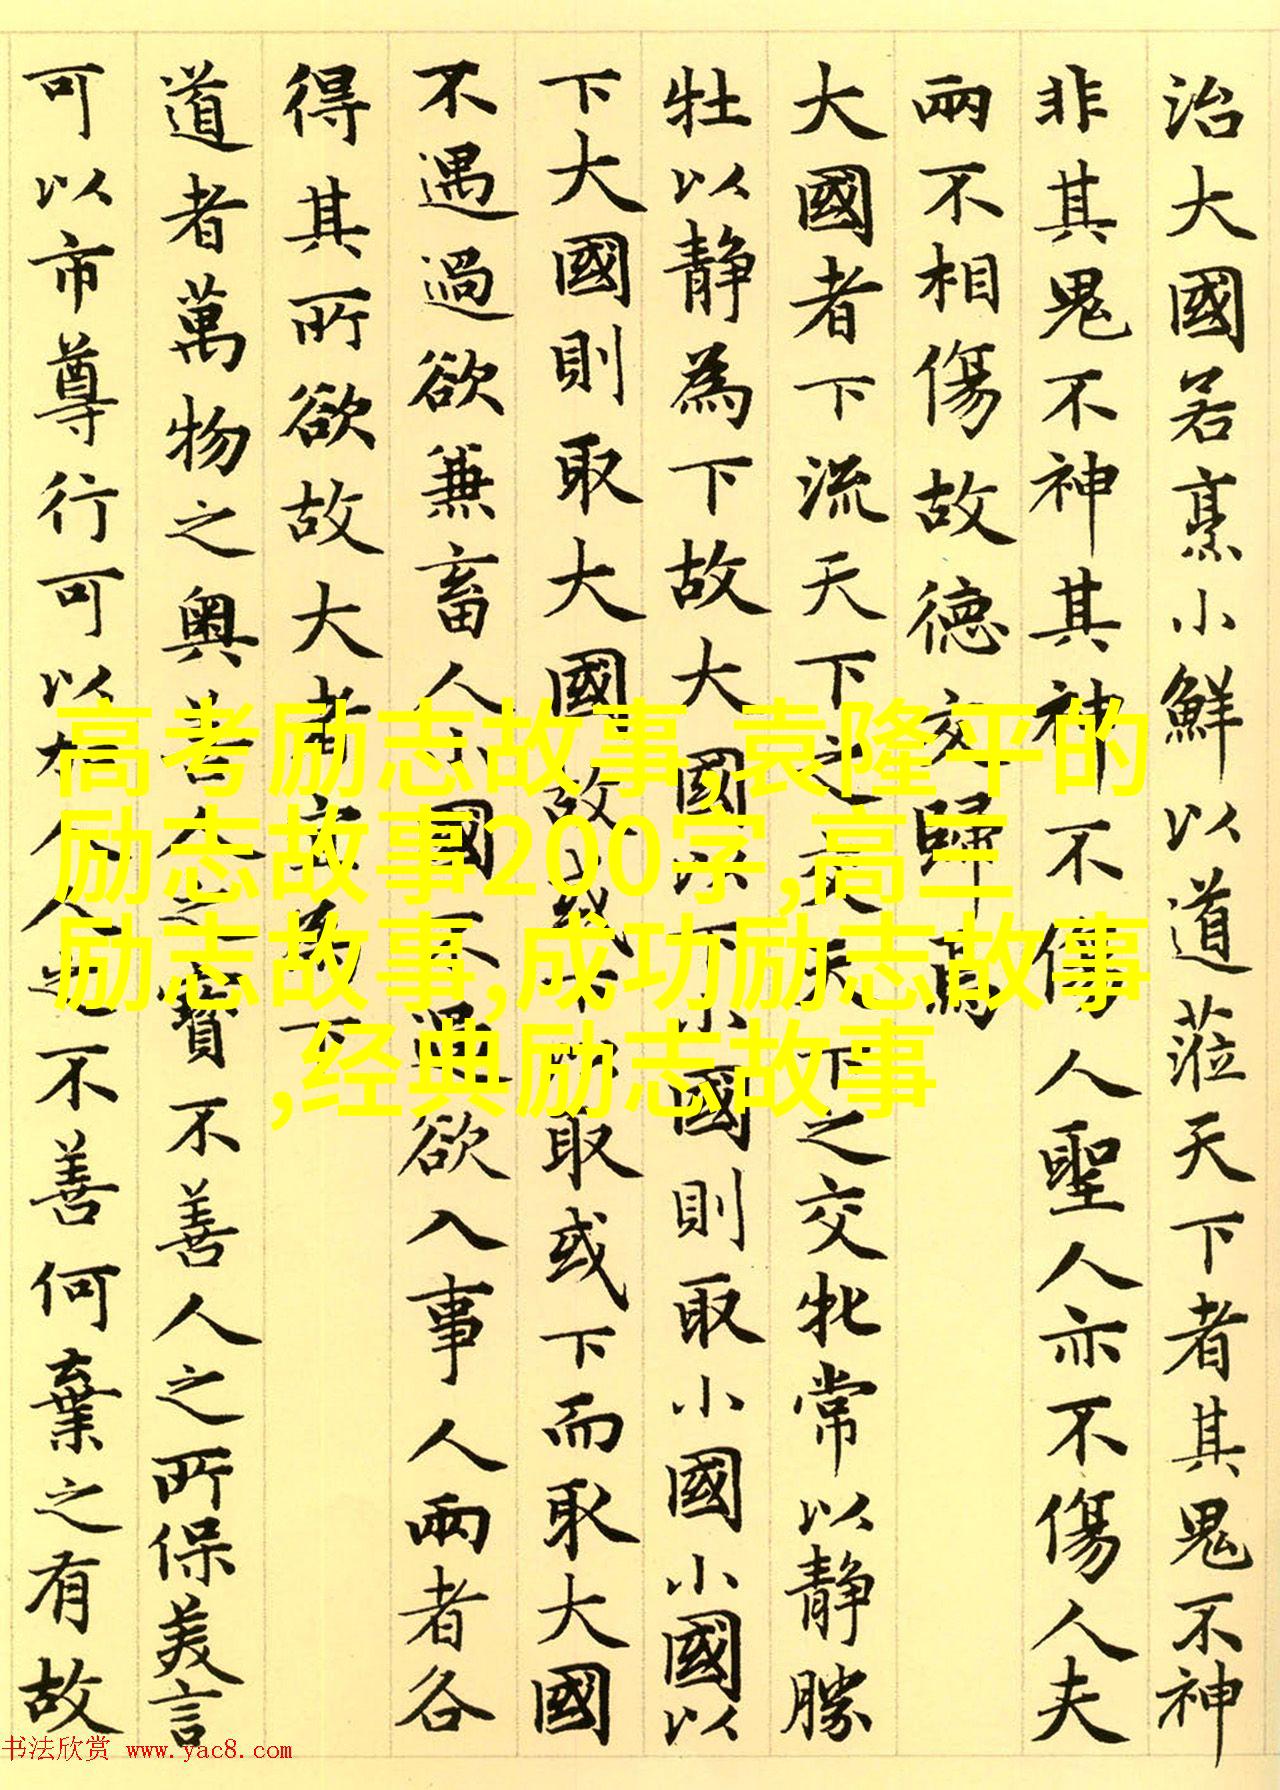 治大國若烹小鮮以道蒞天下者其鬼不神
非其鬼不神其神不傷人聖人亦不傷人夫
兩不相傷故德交歸焉
大國者下流天下之交天下之交牝常以静勝
牡以静為下故大國以下小國則取小國小國以
下大國則取大國故或下以取或下而取大國
不遇過欲兼畜人小國不過欲入事人兩者各
得其所欲故大者宜為下
道者萬物之奥善人之寶不善人之所保美言
可以市尊行可以加人人之不善何棄之有故
高考励志故事,袁隆平的
励志故事200字,高三
励志故事,成功励志故事
,经典励志故事
书法欣赏 www.yac8.com